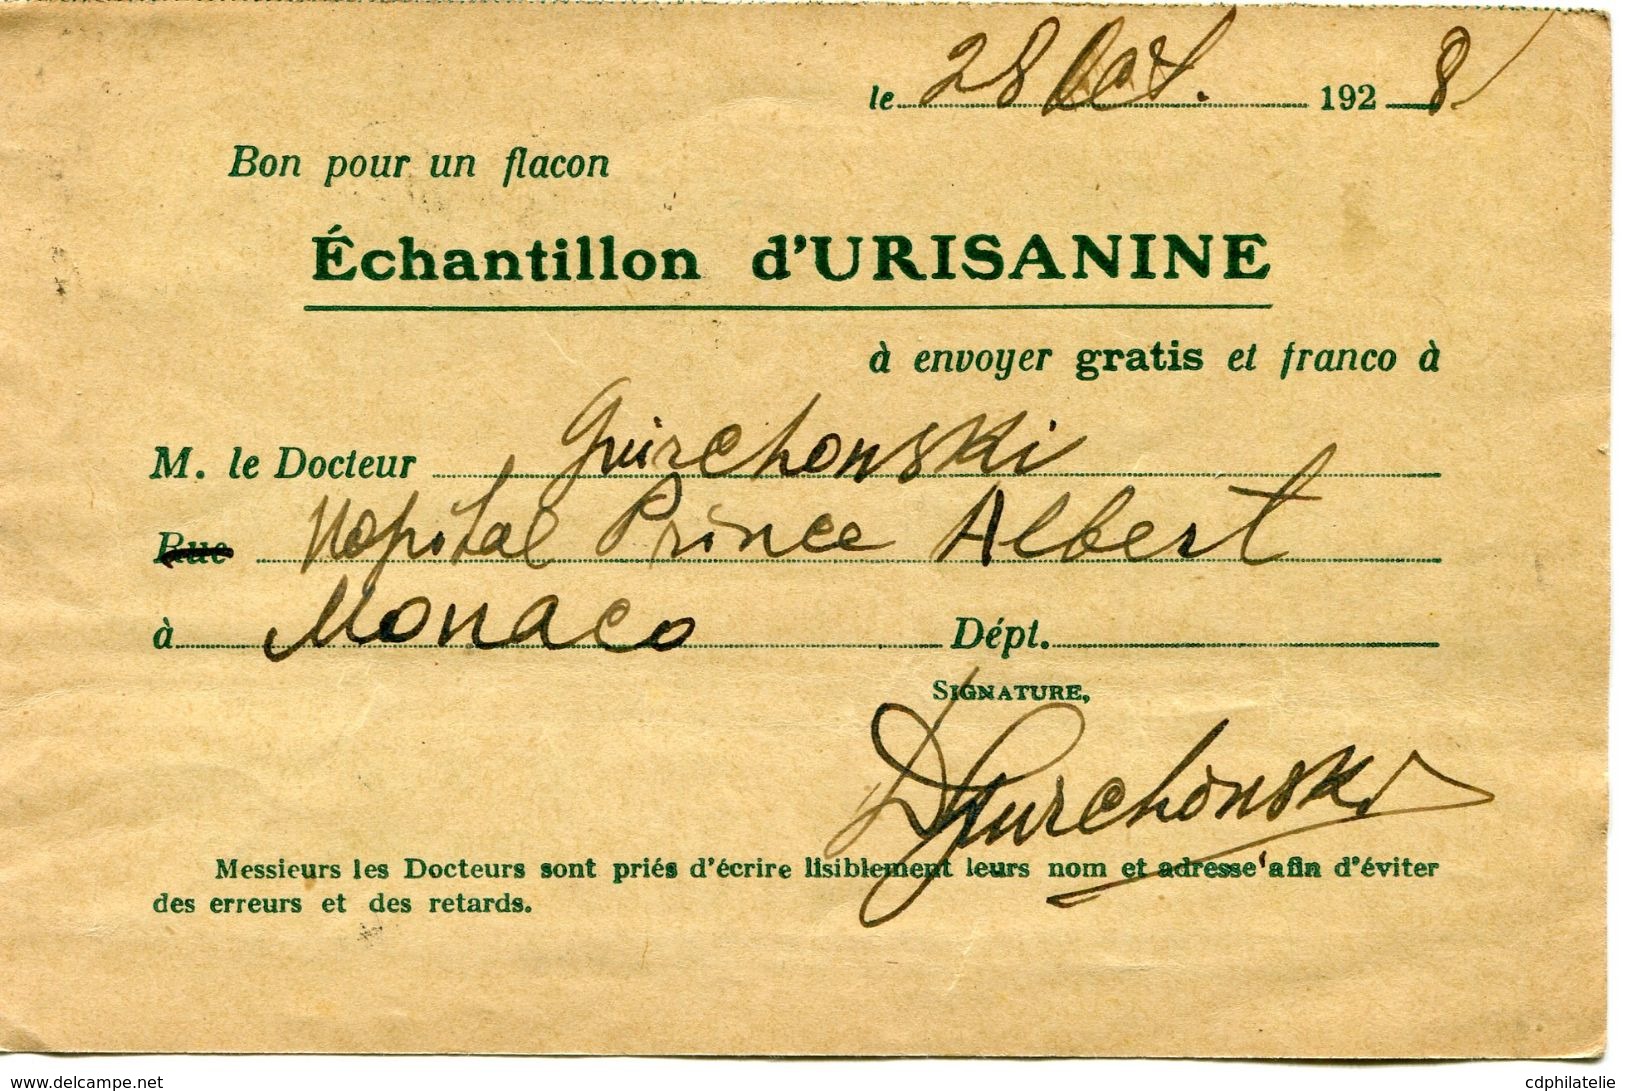 le 28 Oct. 1928
Bon pour un flacon
Échantillon d'URISANINE
à envoyer gratis et franco à
M. le Docteur Guirchowski
Rue Hopital Prince Albert
à Monaco Dépt.
SIGNATURE,
D Gurchowski
Messieurs les Docteurs sont priés d'écrire lisiblement leurs nom et adresse afin d'éviter
des erreurs et des retards.
www.delcampe.net cdphilatelie